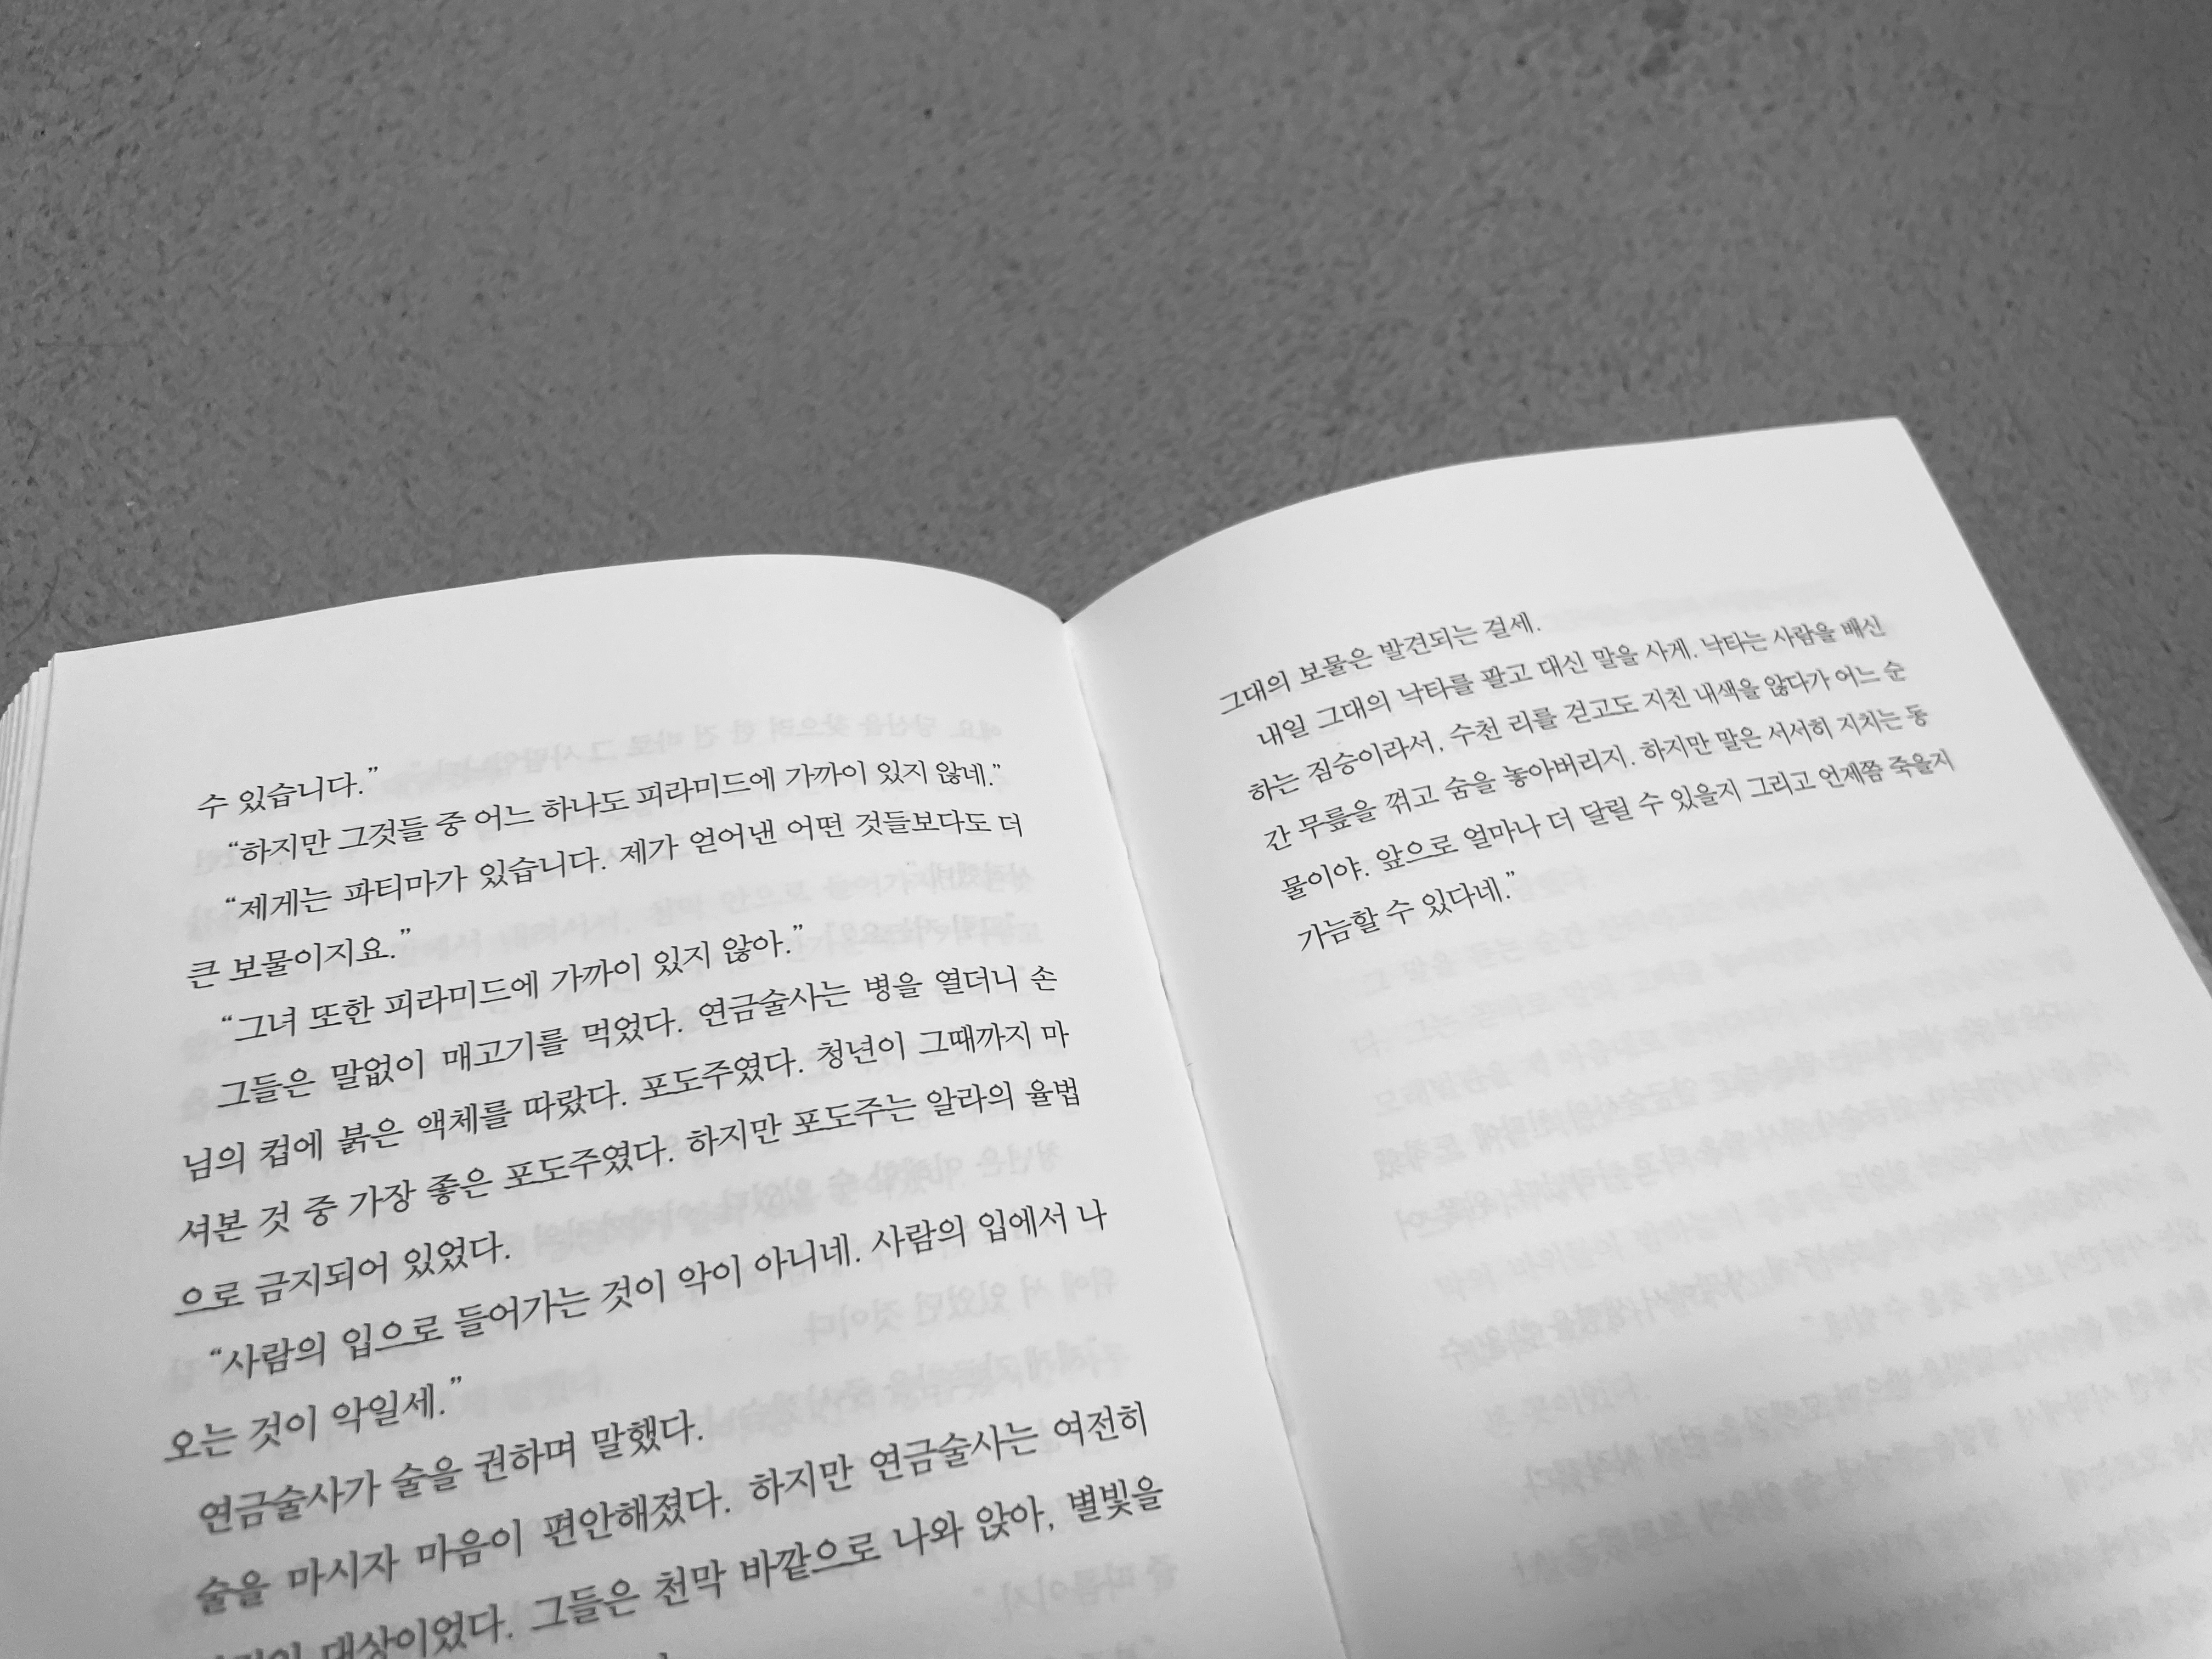 수 있습니다.”
“하지만 그것들 중 어느 하나도 피라미드에 가까이 있지 않네.”
“제게는 파티마가 있습니다. 제가 얻어낸 어떤 것들보다도 더
큰 보물이지요.”
“그녀 또한 피라미드에 가까이 있지 않아.”
그들은 말없이 매고기를 먹었다. 연금술사는 병을 열더니 손
님의 컵에 붉은 액체를 따랐다. 포도주였다. 청년이 그때까지 마
셔본 것 중 가장 좋은 포도주였다. 하지만 포도주는 알라의 율법
으로 금지되어 있었다.
“사람의 입으로 들어가는 것이 악이 아니네. 사람의 입에서 나
오는 것이 악일세.”
연금술사가 술을 권하며 말했다.
술을 마시자 마음이 편안해졌다. 하지만 연금술사는 여전히
대상이었다. 그들은 천막 바깥으로 나와 앉아, 별빛을
그대의 보물은 발견되는 걸세.
내일 그대의 낙타를 팔고 대신 말을 사게. 낙타는 사람을 배신
하는 짐승이라서, 수천 리를 걷고도 지친 내색을 않다가 어느 순
간 무릎을 꺾고 숨을 놓아버리지. 하지만 말은 서서히 지치는 동
물이야. 앞으로 얼마나 더 달릴 수 있을지 그리고 언제쯤 죽을지
가늠할 수 있다네.”